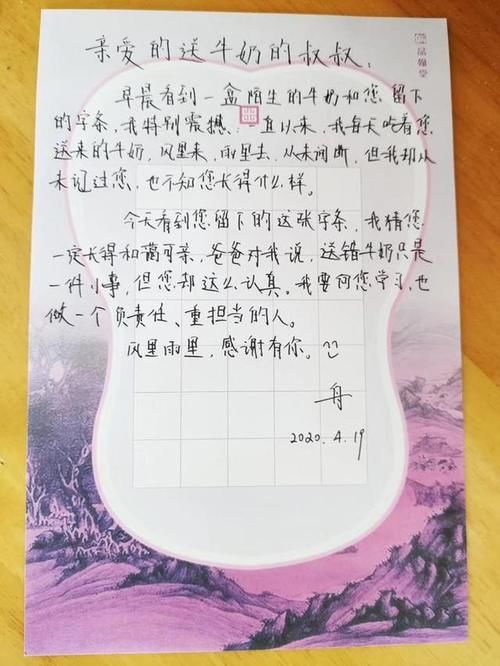 品翰堂
亲爱的送牛奶的叔叔：
早晨看到一盒陌生的牛奶和您留下
的字条，我特别震撼。一直以来，我每天吃着您
送来的牛奶，风里来，雨里去，从未间断，但我却从
未见过您，也不知您长得什么样。
今天看到您留下的这张字条，我猜您
一定长得和蔼可亲，爸爸对我说，送错牛奶只是
一件小事，但您却这么认真。我要向您学习，也
做一个负责任、重担当的人。
风里雨里，感谢有你。
舟
2020.4.19